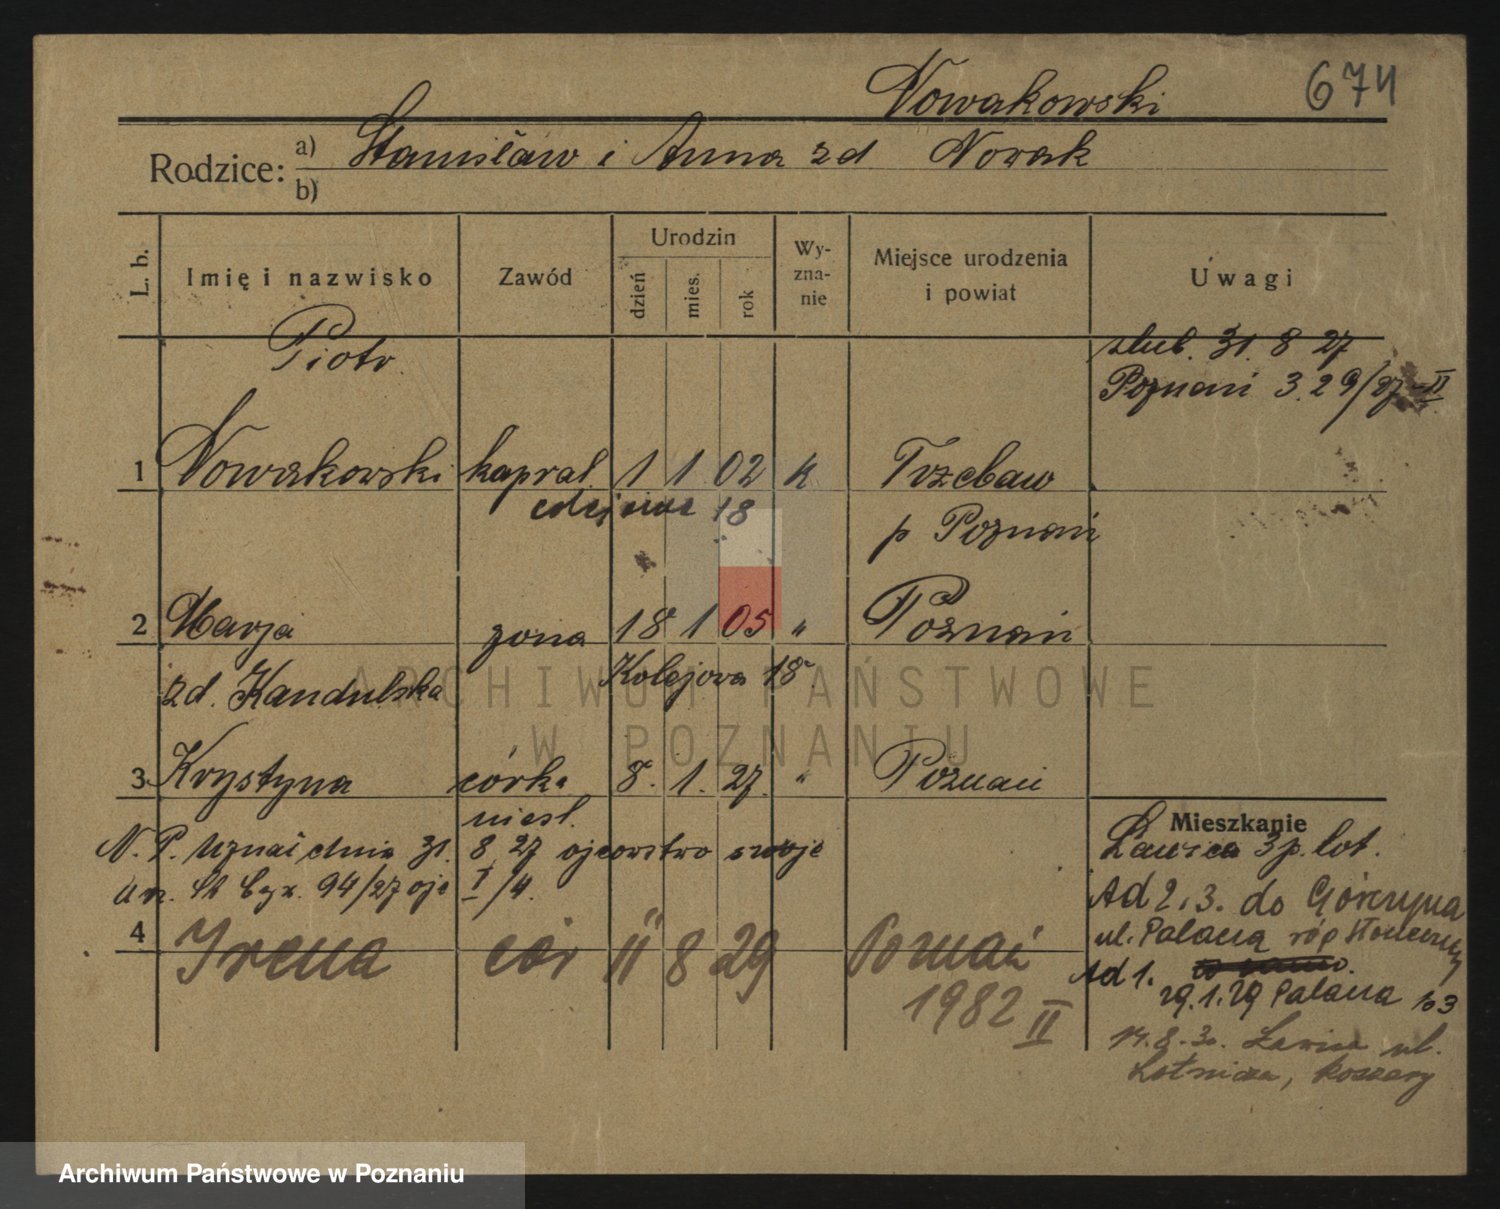 Nowakowski 674
Rodzice: a) Stanisław i Anna zd Nowak
b)
L. b. Imię i nazwisko Zawód Urodzin dzień mies. rok Wy-zna-nie Miejsce urodzenia i powiat Uwagi
Piotr ślub. 31. 8 27
Poznań 329/27-II
1 Nowakowski kapral 1 1 02 k Trzebaw
18 p Poznań
2 Marja żona 18 1 05 " Poznań
zd. Kandulska Kolejowa 18
ARCHIWUM PAŃSTWOWE
W POZNANIU
3 Krystyna córka 8. 1. 27. " Poznań
nieśl.
Mieszkanie
N. P. uznał dnia 31. 8 27 ojcowstwo swoje
94/27 I/4.
Ławica 3 p. lot.
Ad 2. 3. do Górczyna
ul. Palacza róg
4 Irena cór 11 8 29 Poznań
1982 II
Ad 1.
29.1.29 Palacza 103
14.8.30. Ławica ul.
Lotnicza, koszary
Archiwum Państwowe w Poznaniu